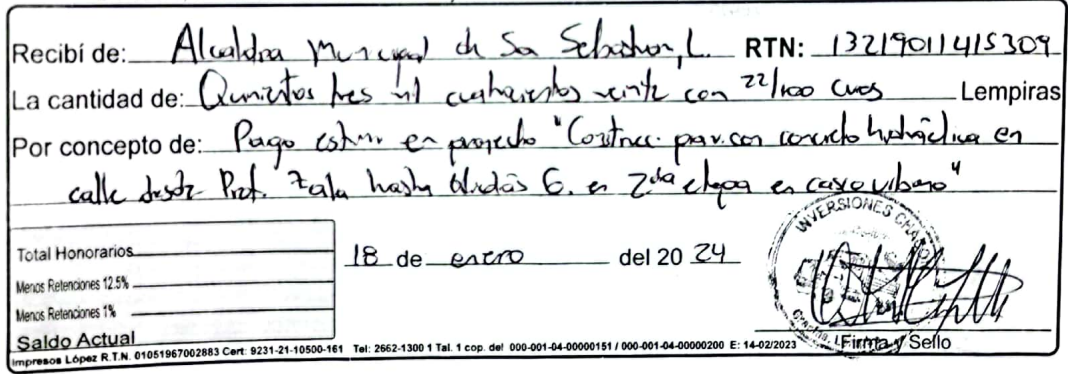 Recibí de: Alcaldia Municipal de San Sebastian, L. RTN: 13219011415309
La cantidad de: Quinientos tres mil cuatrocientos veinte con 22/100 cvos Lempiras
Por concepto de: Pago estim. en proyecto "Construcc. pav. con concreto hidráulica en
calle desde Prof. hasta G. en 2da etapa en casco urbano"
Total Honorarios
Menos Retenciones 12.5%
Menos Retenciones 1%
Saldo Actual
18 de enero del 2024
INVERSIONES
Firma y Sello
Impresos López R.T.N. 01051967002883 Cert: 9231-21-10500-161 Tel: 2662-1300 1 Tal. 1 cop. del 000-001-04-00000151 / 000-001-04-00000200 E: 14-02/2023